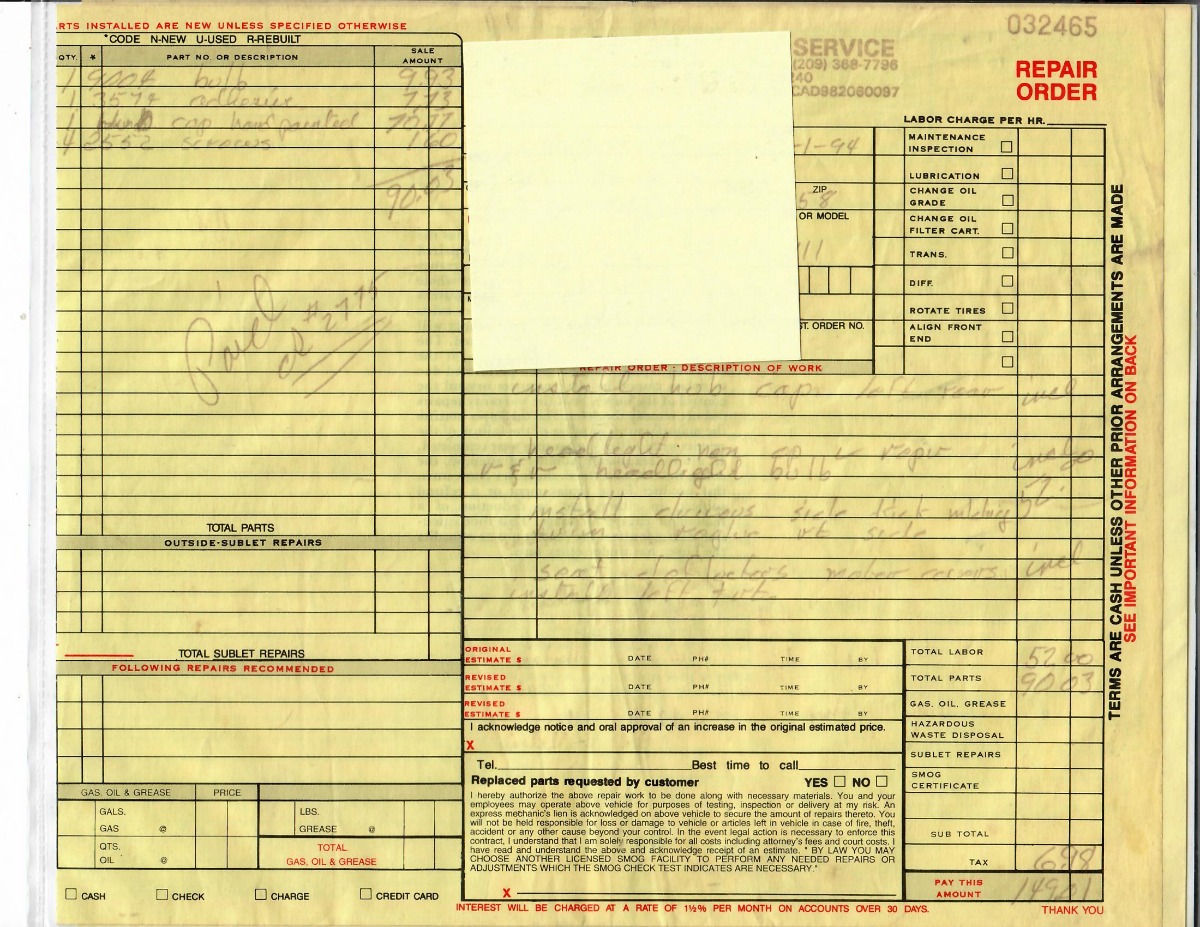 PARTS INSTALLED ARE NEW UNLESS SPECIFIED OTHERWISE
*CODE N-NEW U-USED R-REBUILT
QTY. * PART NO. OR DESCRIPTION SALE AMOUNT
1 9004 bulb 9.93
1 3574 adhesive 7.73
1 hub cap hand painted 70.77
4 2552 screws 1.60
90.03
Paid
ck #2775
TOTAL PARTS
OUTSIDE-SUBLET REPAIRS
TOTAL SUBLET REPAIRS
FOLLOWING REPAIRS RECOMMENDED
GAS, OIL & GREASE PRICE
GALS.
GAS @
QTS.
OIL @
LBS.
GREASE @
TOTAL
GAS, OIL & GREASE
CASH CHECK CHARGE CREDIT CARD
SERVICE
(209) 368-7796
240
CAD982060097
032465
REPAIR
ORDER
LABOR CHARGE PER HR.
-1-94
ZIP
58
OR MODEL
111
ST. ORDER NO.
MAINTENANCE
INSPECTION
LUBRICATION
CHANGE OIL
GRADE
CHANGE OIL
FILTER CART.
TRANS.
DIFF.
ROTATE TIRES
ALIGN FRONT
END
REPAIR ORDER - DESCRIPTION OF WORK
install hub cap left rear incl
headlight non op repair
r & r headlight bulb
install side
side
incl
left
ORIGINAL
ESTIMATE $ DATE PH# TIME BY
REVISED
ESTIMATE $ DATE PH# TIME BY
REVISED
ESTIMATE $ DATE PH# TIME BY
I acknowledge notice and oral approval of an increase in the original estimated price.
X
Tel. Best time to call
Replaced parts requested by customer YES NO
I hereby authorize the above repair work to be done along with necessary materials. You and your
employees may operate above vehicle for purposes of testing, inspection or delivery at my risk. An
express mechanic's lien is acknowledged on above vehicle to secure the amount of repairs thereto. You
will not be held responsible for loss or damage to vehicle or articles left in vehicle in case of fire, theft,
accident or any other cause beyond your control. In the event legal action is necessary to enforce this
contract, I understand that I am solely responsible for all costs including attorney's fees and court costs. I
have read and understand the above and acknowledge receipt of an estimate. " BY LAW YOU MAY
CHOOSE ANOTHER LICENSED SMOG FACILITY TO PERFORM ANY NEEDED REPAIRS OR
ADJUSTMENTS WHICH THE SMOG CHECK TEST INDICATES ARE NECESSARY."
X
TOTAL LABOR 52.00
TOTAL PARTS 90.03
GAS, OIL, GREASE
HAZARDOUS
WASTE DISPOSAL
SUBLET REPAIRS
SMOG
CERTIFICATE
SUB TOTAL
TAX 6.98
PAY THIS
AMOUNT 149.01
INTEREST WILL BE CHARGED AT A RATE OF 1½% PER MONTH ON ACCOUNTS OVER 30 DAYS.
THANK YOU
TERMS ARE CASH UNLESS OTHER PRIOR ARRANGEMENTS ARE MADE
SEE IMPORTANT INFORMATION ON BACK